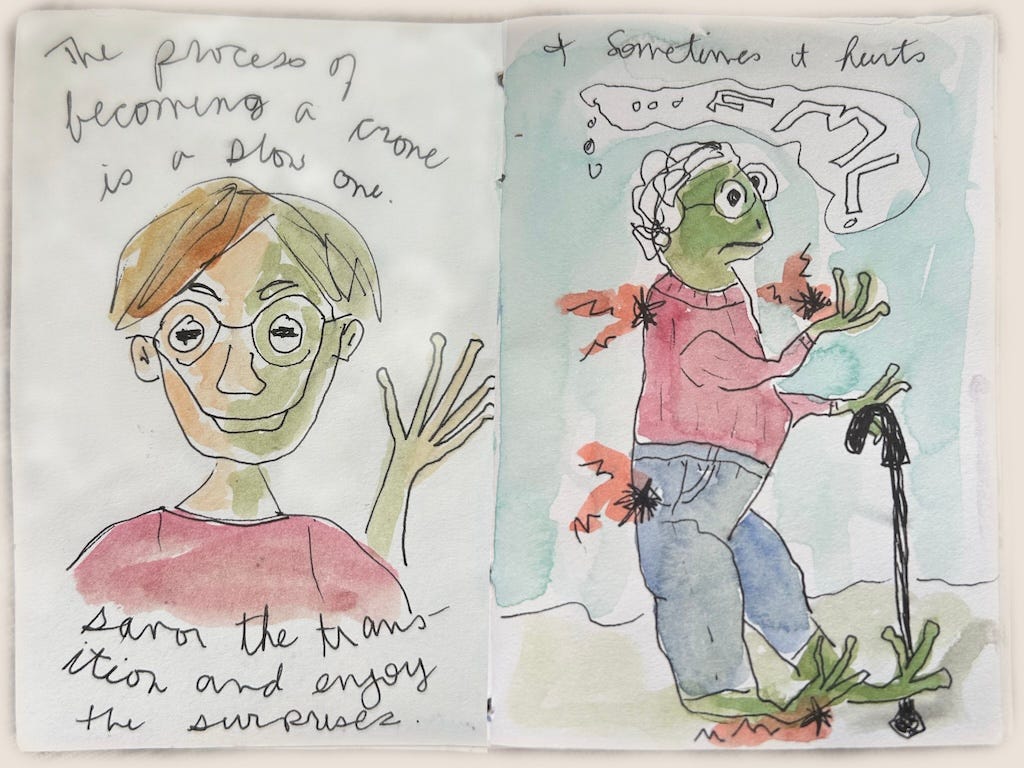 The process of
becoming a crone
is a slow one.
savor the trans-
ition and enjoy
the surprises.
& Sometimes it hurts